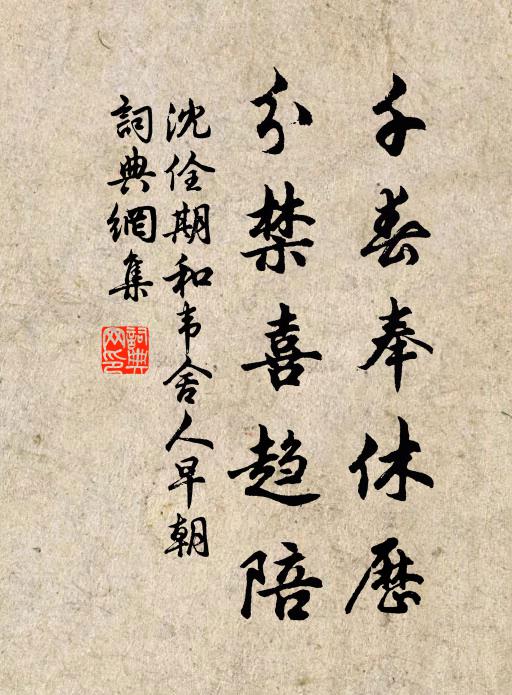 千春奉休歷
分禁喜趋陪
沈佺期和韦舍人早朝
詞典網集
詞典网印